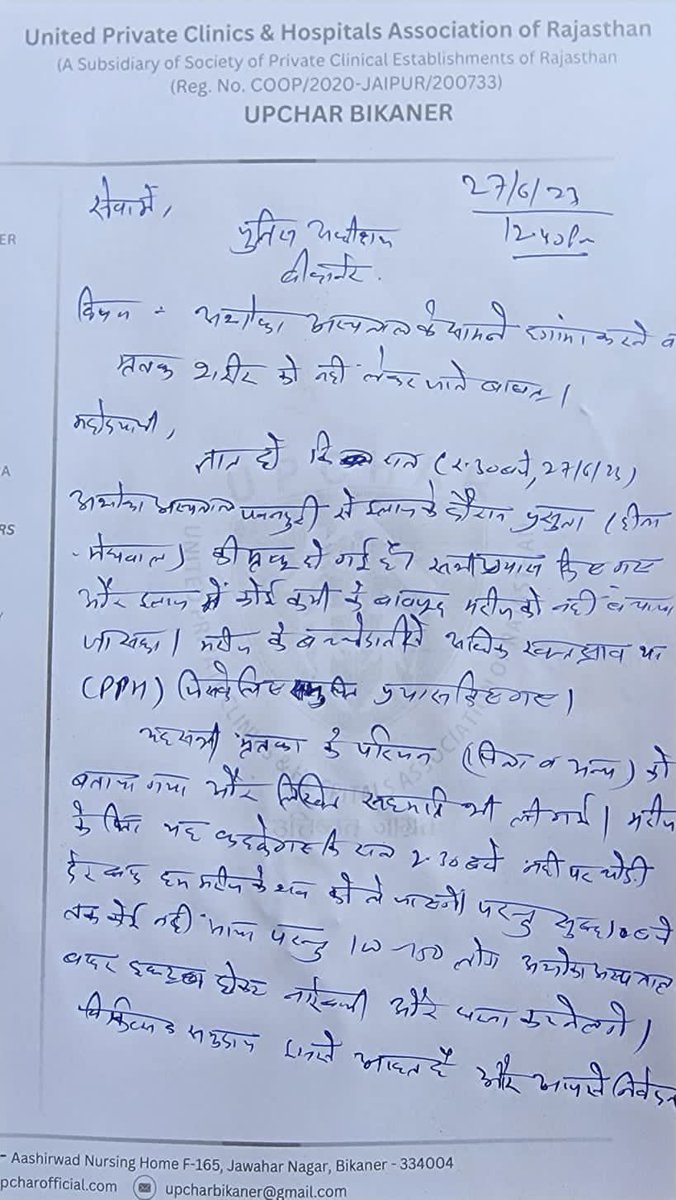 United Private Clinics & Hospitals Association of Rajasthan
(A Subsidiary of Society of Private Clinical Establishments of Rajasthan
(Reg. No. COOP/2020-JAIPUR/200733)
UPCHAR BIKANER
27/6/23
12.40Pm
सेवामें,
पुलिस अधीक्षक
बीकानेर.
विषय - अशोका अस्पताल के सामने हंगामा करने व
मृतक शरीर को नहीं लेकर जाने बाबत।
महोदयाजी,
ज्ञात हो कि रात (2.30बजे, 27/6/23)
अशोका अस्पताल पवनपुरी में इलाज के दौरान प्रसूता (
मेघवाल) की मृत्यु हो गई है। सभी प्रयास किए गए
और इलाज में कोई कमी के बावजूद मरीज को नहीं बचाया
जा सका। मरीज के बच्चेदानी से अधिक रक्तस्राव था
(PPH) जिसके लिए समुचित प्रयास किए गए।
यह सभी मृतका के परिजन (पिता व अन्य) को
बताया गया और लिखित सहमति भी ली गई। मरीज
के पिता यह कहके गए कि रात 2.30 बजे नहीं पर थोड़ी
देर बाद हम मरीज के शव को ले जाएगें। परन्तु सुबह 10 बजे
तक कोई नहीं आया परन्तु 100-150 लोग अशोका अस्पताल
बाहर इकट्ठा होकर नारेबाजी और धरना करने लगे।
चिकित्सक समुदाय इससे आहत है और आपसे निवेदन
ER
A
RS
- Aashirwad Nursing Home F-165, Jawahar Nagar, Bikaner - 334004
pcharofficial.com upcharbikaner@gmail.com